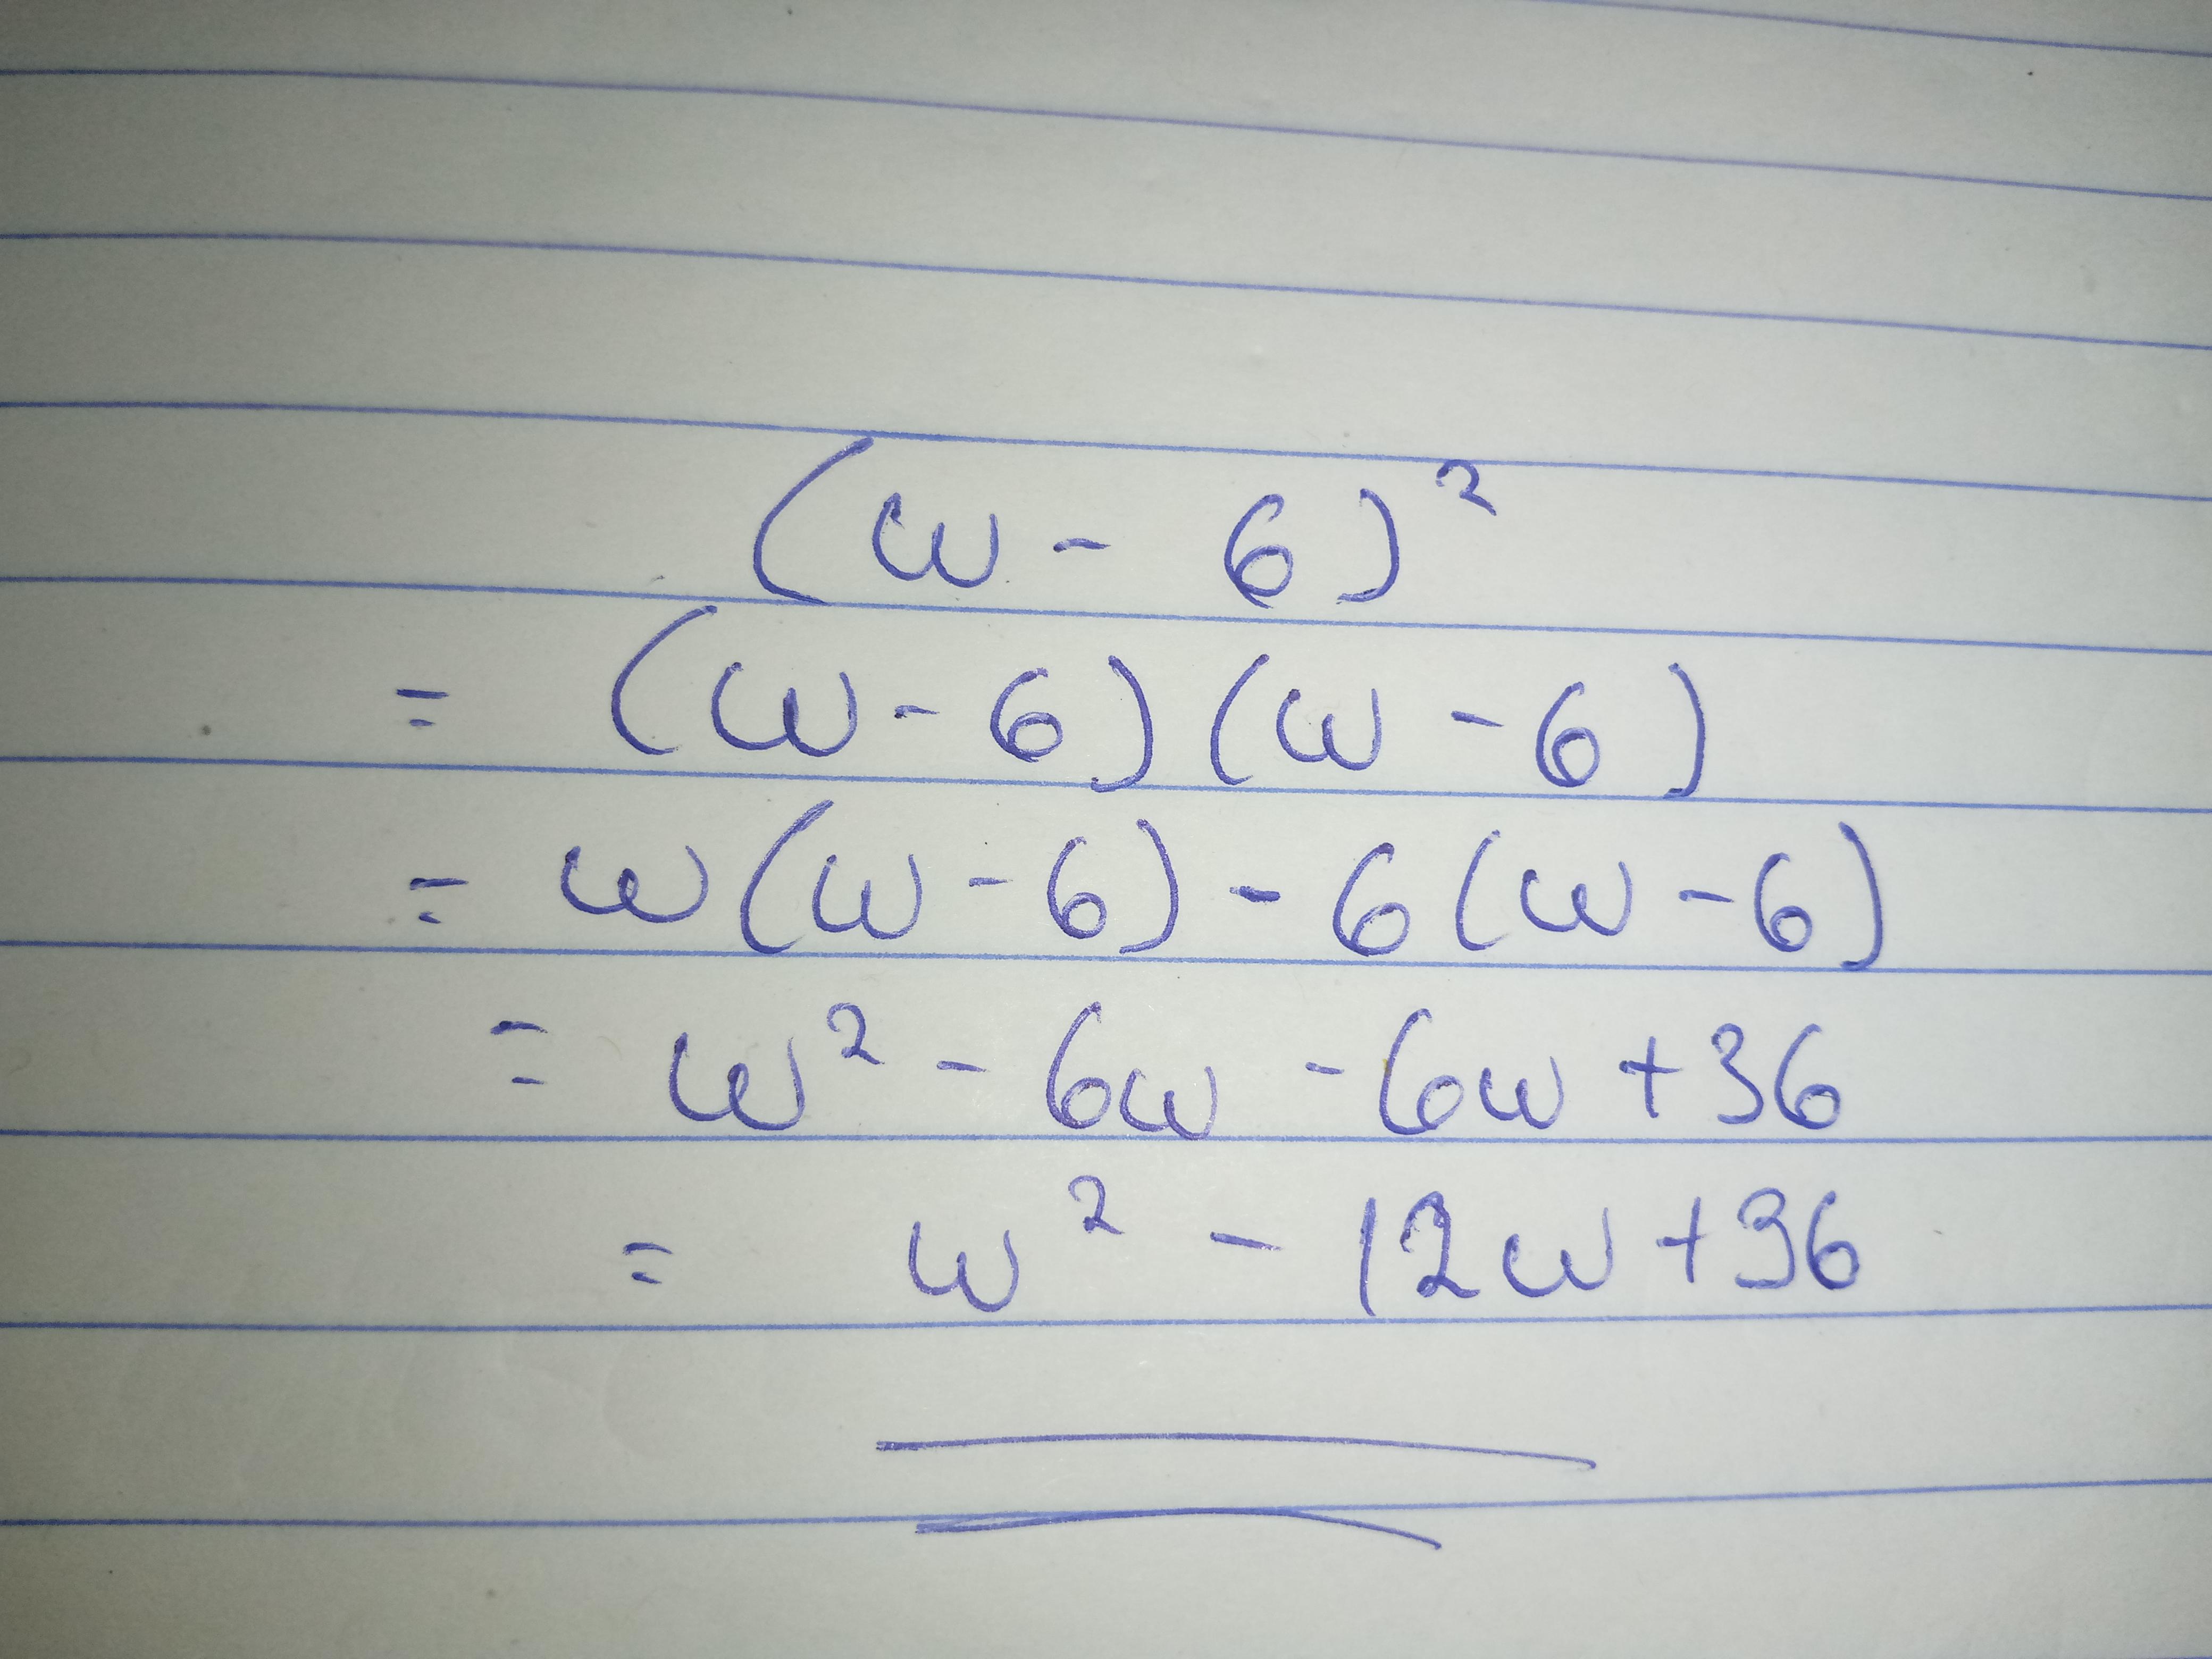 (w - 6)²
= (w - 6)(w - 6)
= w(w - 6) - 6(w - 6)
= w² - 6w - 6w + 36
= w² - 12w + 36